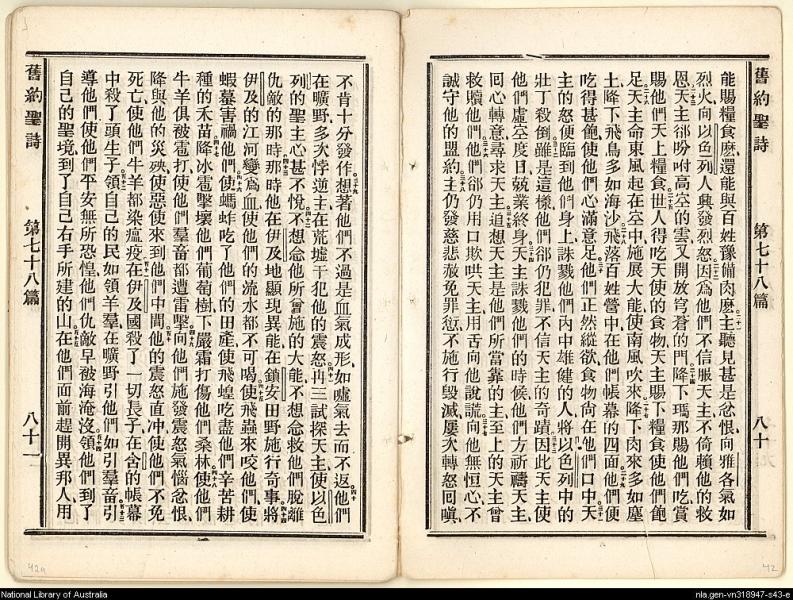 舊約聖詩
第七十八篇
八十
能賜糧食麽還能與百姓豫備肉麽主聽見甚是忿恨向雅各氣如
烈火向以色列人興發烈怒因爲他們不信服天主不倚賴他的救
恩天主卻吩咐高空的雲又開放穹蒼的門降下瑪那賜他們吃賞
賜他們天上糧食世人得吃天使的食物天主賜下糧食使他們飽
足天主命東風起在空中施展大能使南風吹來降下肉來多如塵
土降下飛鳥多如海沙飛落百姓營中在他們帳幕的四面他們便
吃得甚飽使他們心滿意足他們正然縱欲食物尙在他們口中天
主的怒便臨到他們身上誅戮他們內中雄健的人將以色列中的
壯丁殺倒雖是這樣他們卻仍犯罪不信天主的奇蹟因此天主使
他們虛空度日兢業終身天主誅戮他們的時候他們方祈禱天主
回心轉意尋求天主追想天主是他們所當靠的主至上的天主曾
救贖他們他們卻仍用口欺哄天主用舌向他說謊向他無恒心不
誠守他的盟約主仍發慈悲赦免罪愆不施行毀滅屢次轉怒回嗔
舊約聖詩
第七十八篇
八十一
不肯十分發作想著他們不過是血氣成形如噓氣去而不返他們
在曠野多次悖逆主在荒墟干犯他的震怒冉三試探天主使以色
列的聖主心甚不悅不想念他所曾施的大能不想念救他們脫離
仇敵的那時那時他在伊及地顯現異能在鎖安田野施行奇事將
伊及的江河變爲血使他們的流水都不可喝使飛蟲來咬他們使
蝦蟇害禍他們使螞蚱吃了他們的田產使飛蝗吃盡他們辛苦耕
種的禾苗降冰雹擊壞他們葡萄樹下嚴霜打傷他們桑林使他們
牛羊俱被雹打使他們羣畜都遭雷擊向他們施發震怒氣惱忿恨
降與他的災殃使惡使來到他們中間他的震怒直冲使他們不免
死亡使他們牛羊都染瘟疫在伊及國殺了一切長子在含的帳幕
中殺了頭生子領自己的民如領羊羣在曠野引他們如引羣畜引
導他們使他們平安無所恐惶他們仇敵早被海淹沒領他們到了
自己的聖境到了自己右手所建的山在他們面前趕開異邦人用
42a
42
National Library of Australia
nla.gen-vn318947-s43-e